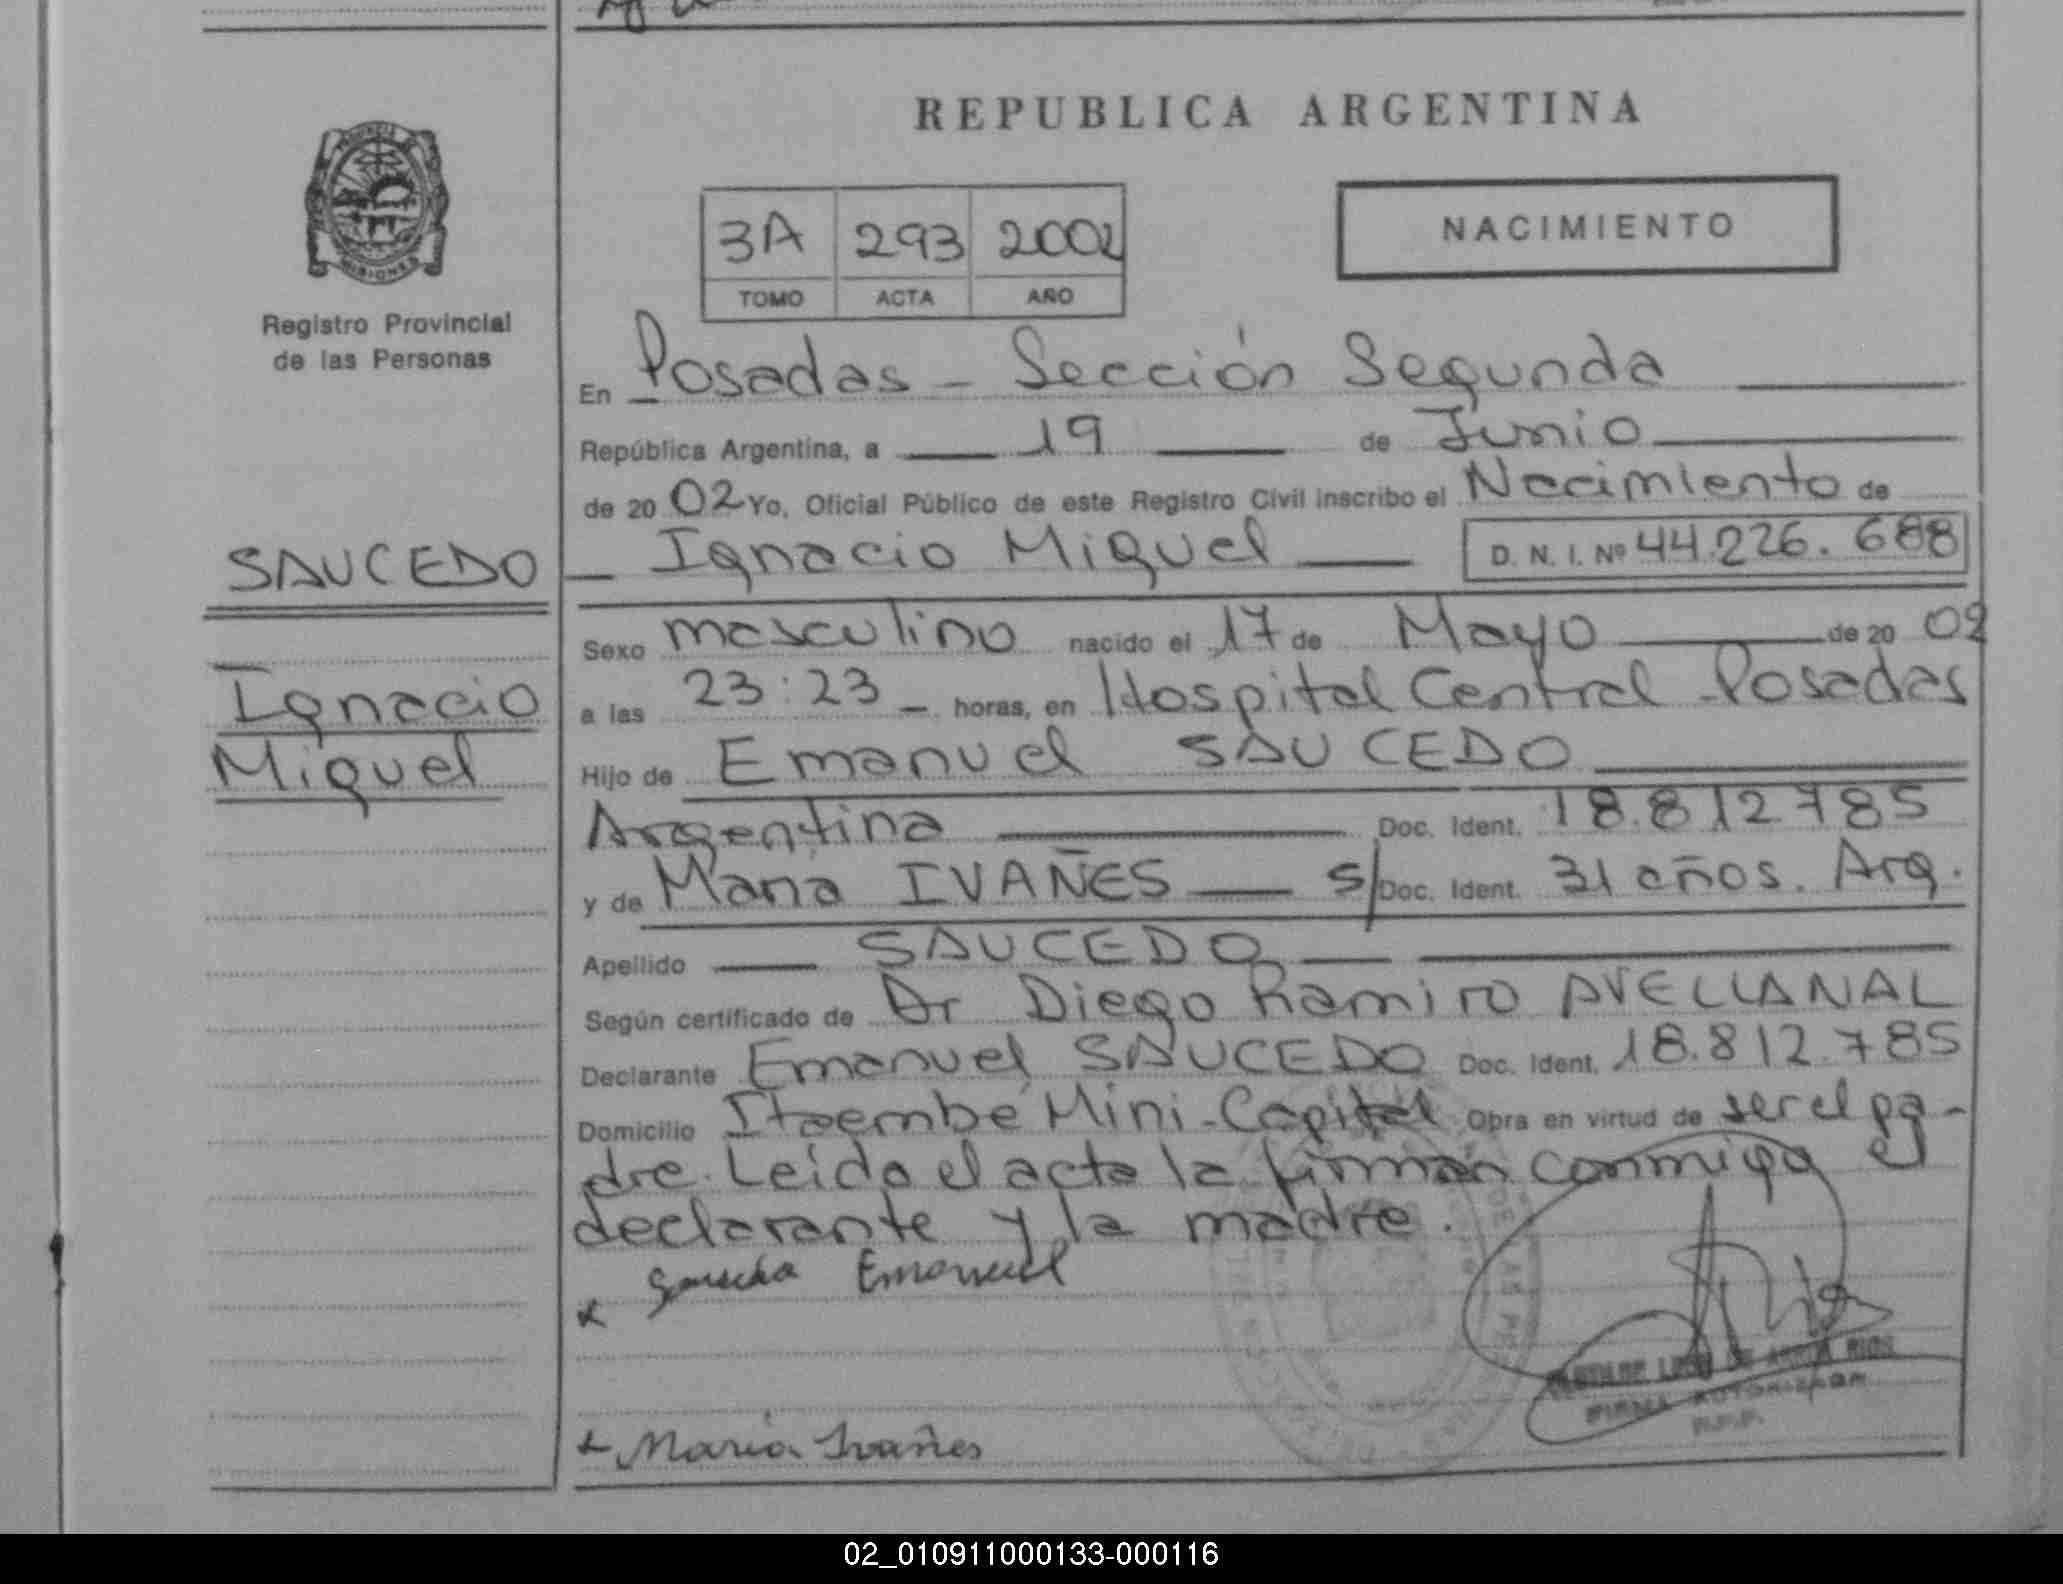 REPUBLICA ARGENTINA
NACIMIENTO
3A 293 2002
TOMO ACTA AÑO
PROVINCIA DE
MISIONES
Registro Provincial
de las Personas
SAUCEDO
Ignacio
Miguel
En Posadas - Sección Segunda
República Argentina, a 19 de Junio
de 20 02 Yo, Oficial Público de este Registro Civil inscribo el Nacimiento de
Ignacio Miguel D. N. I. Nº 44.226.688
Sexo masculino nacido el 17 de Mayo de 20 02
a las 23:23 horas, en Hospital Central - Posadas
Hijo de Emanuel SAUCEDO
Argentina Doc. Ident. 18.812785
y de María IVAÑES s/Doc. Ident. 31 años. Arg.
Apellido SAUCEDO
Según certificado de Dr Diego Ramiro AVELLANAL
Declarante Emanuel SAUCEDO Doc. Ident. 18.812.785
Domicilio Itaembé Mini - Capital Obra en virtud de ser el pa-
dre. Leída el acta la firman conmigo el
declarante y la madre.
x Saucedo Emanuel
x María Ivañes
FIRMA AUTORIZADA
R.P.P.
02_010911000133-000116